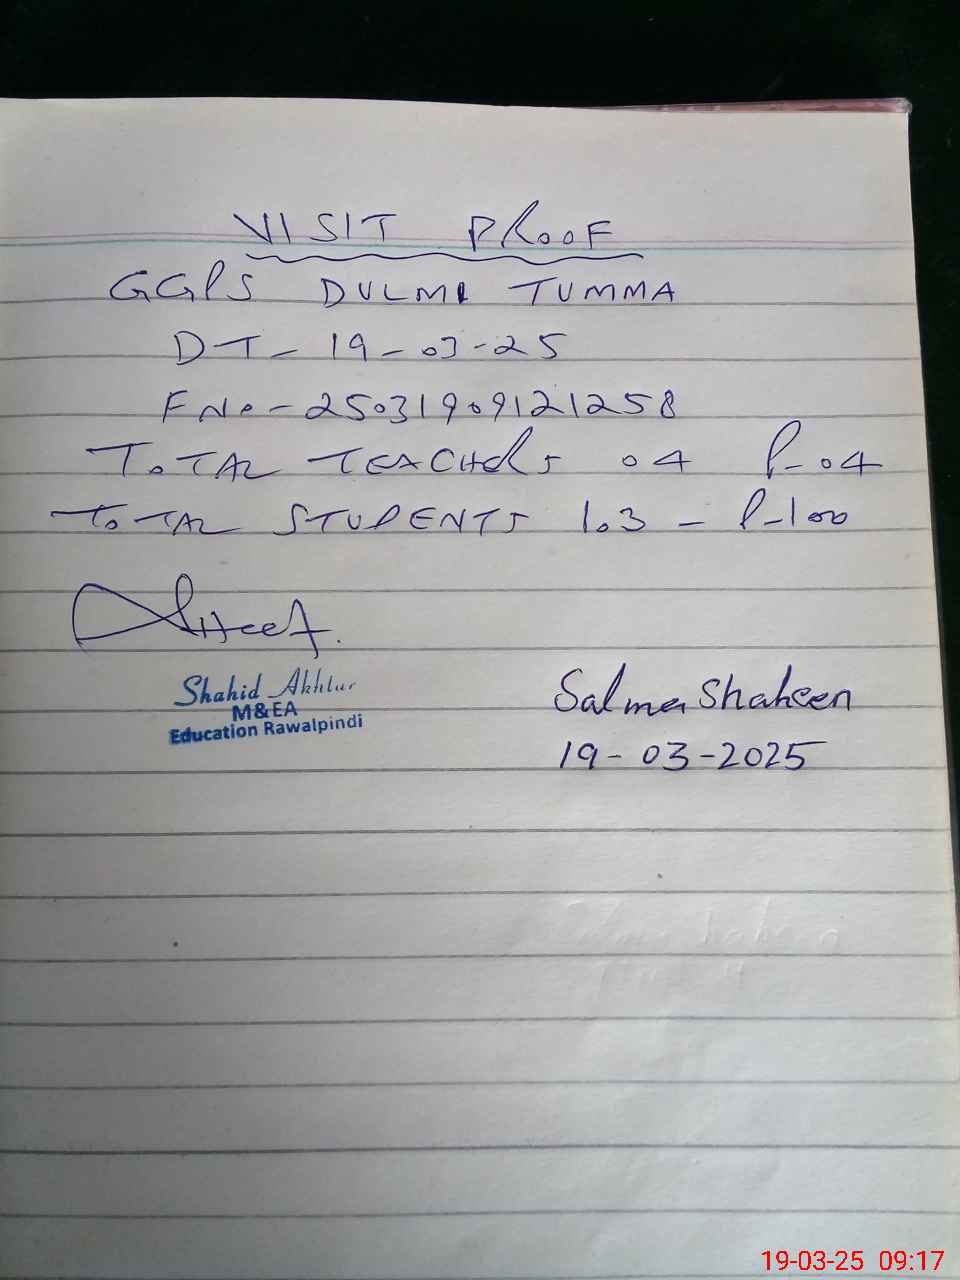 VISIT PROOF
GGPS DULMI TUMMA
DT- 19-03-25
F No- 25031909121258
TOTAL TEACHERS 04 P-04
TOTAL STUDENTS 103 - P-100
Shahid Akhtar
M&EA
Education Rawalpindi
Salma Shaheen
19-03-2025
19-03-25 09:17